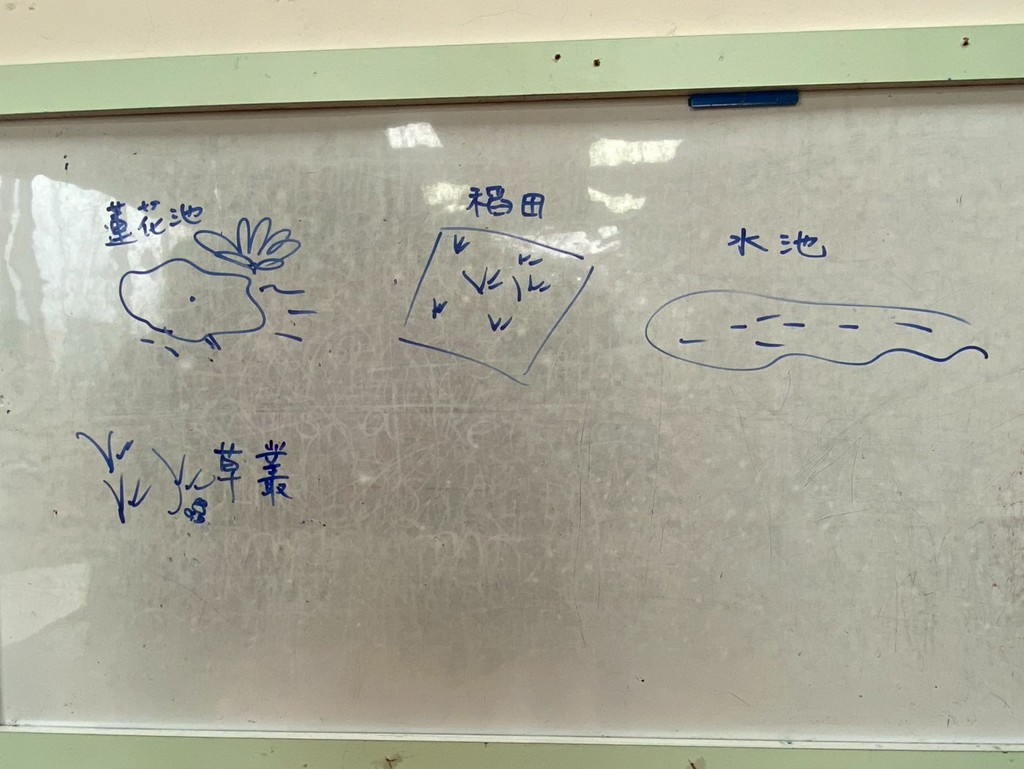 蓮花池
稻田
水池
草叢